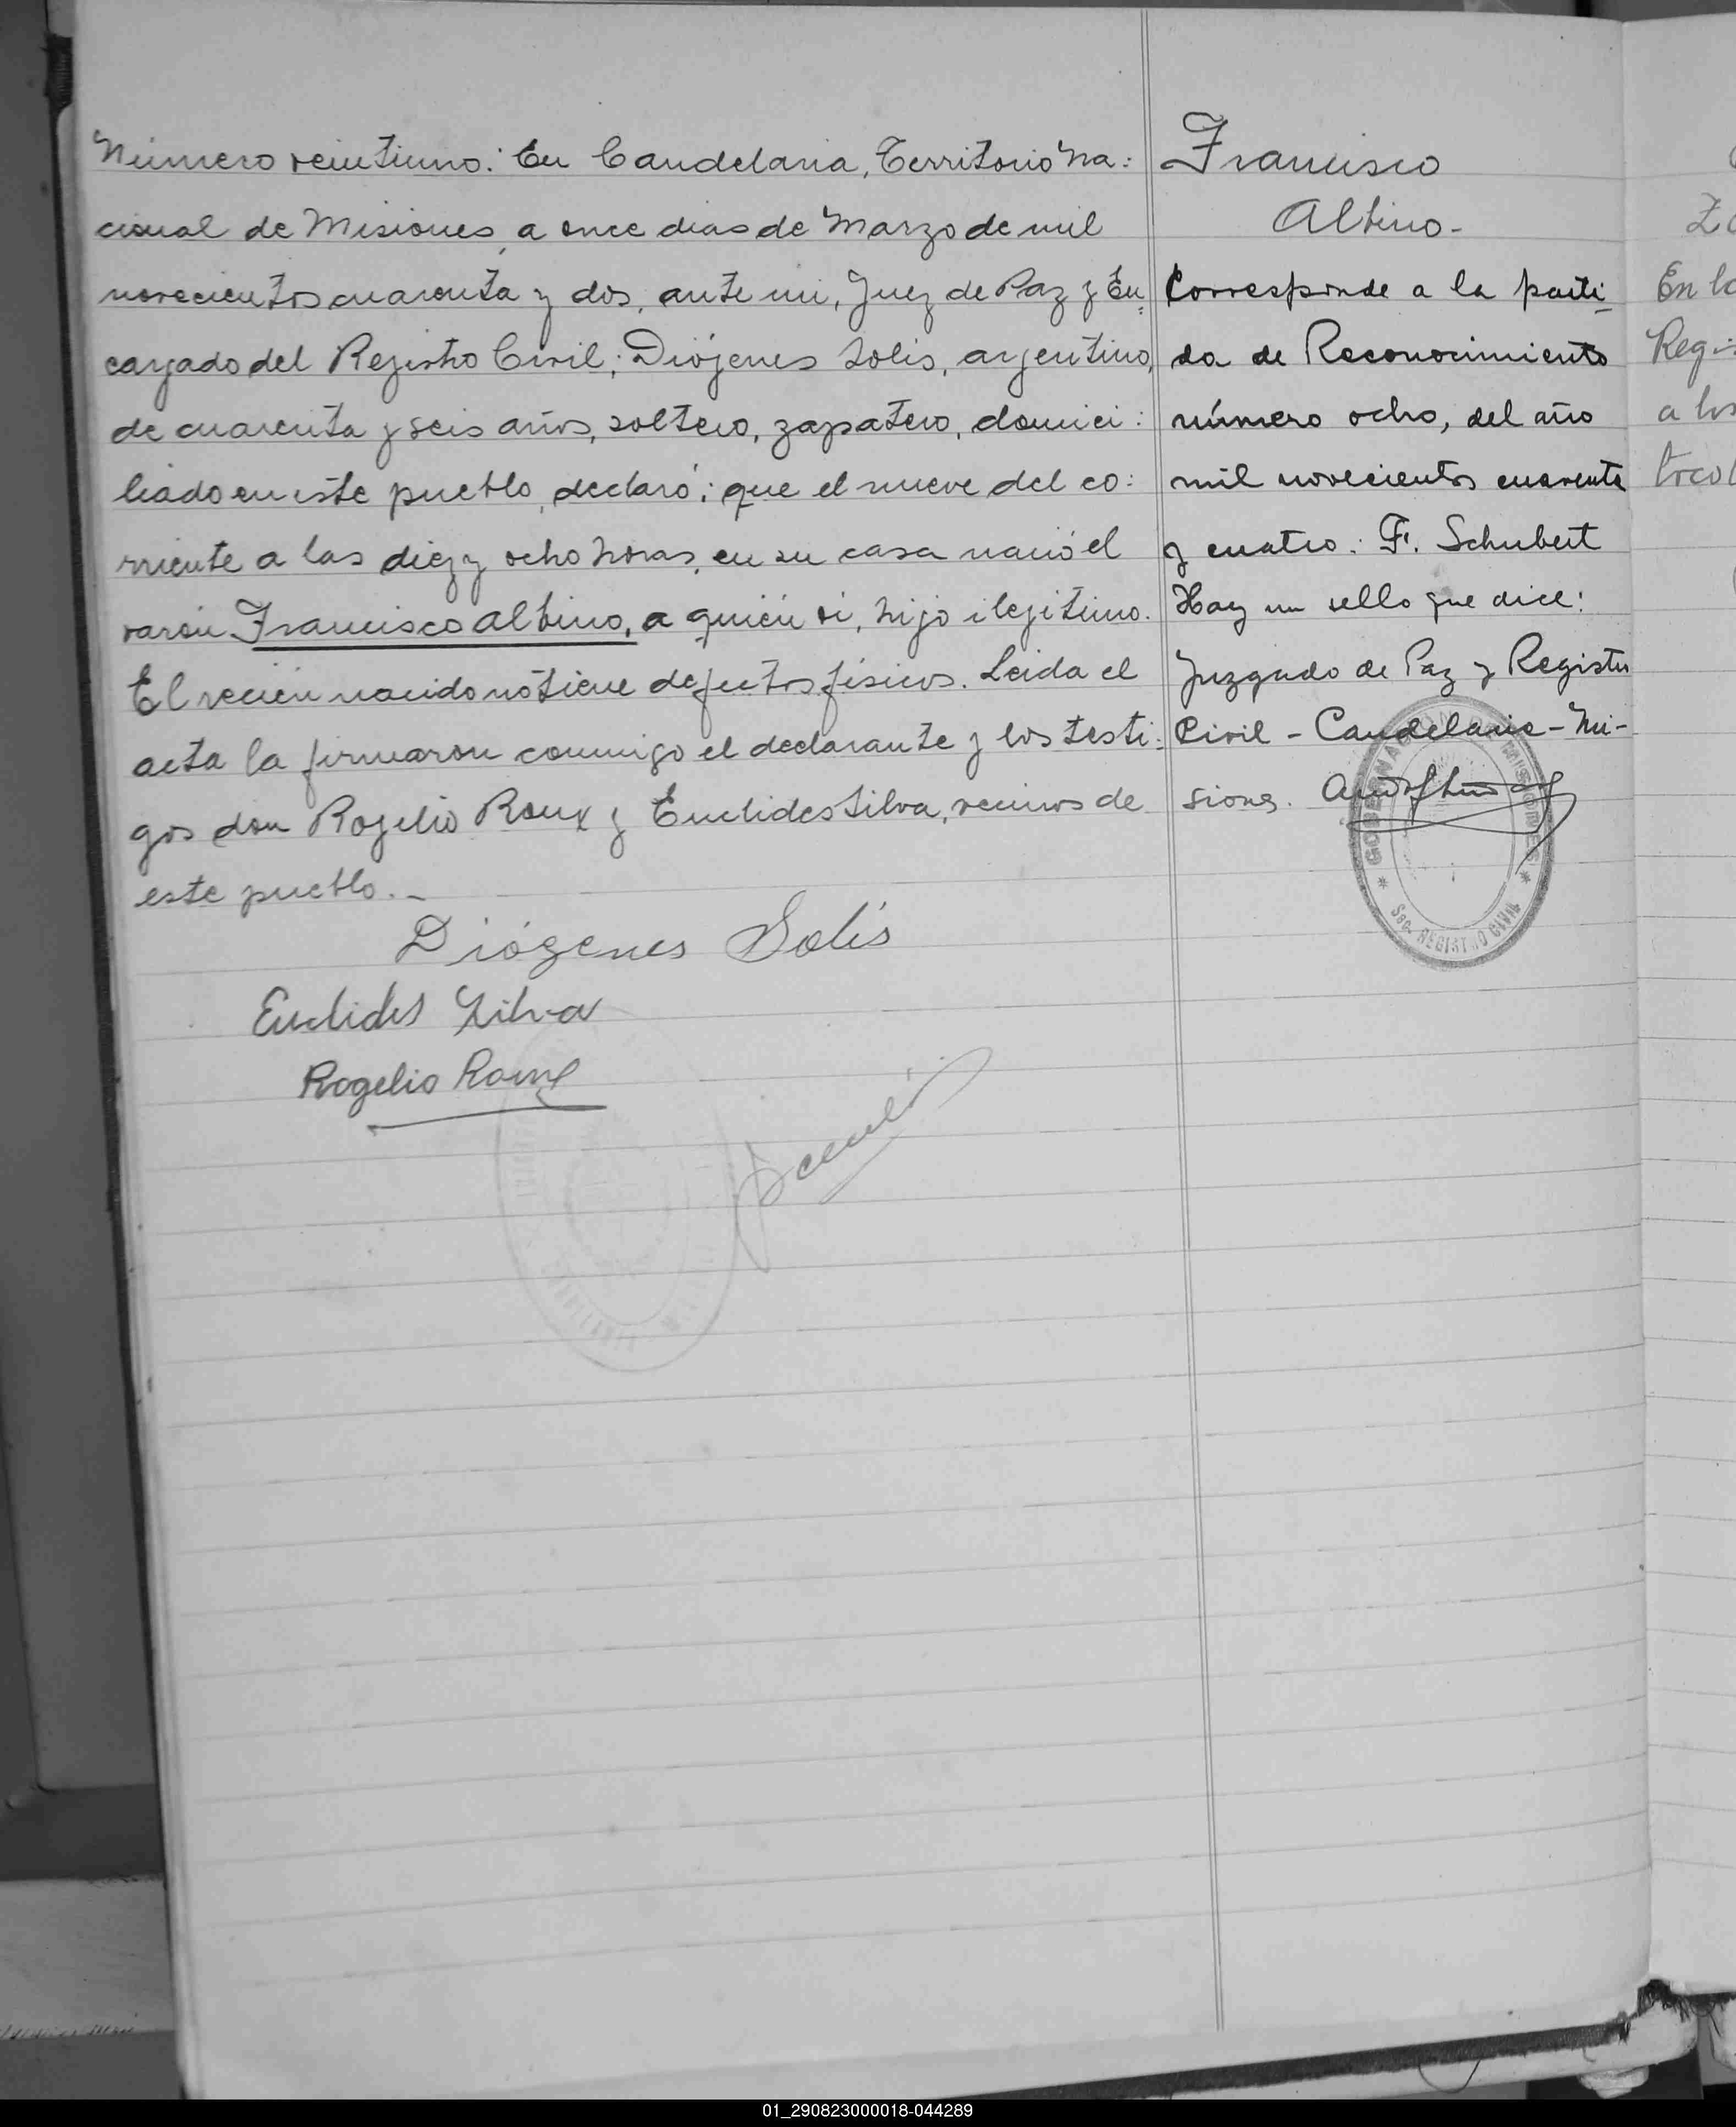 Número veintiuno: En Candelaria, Territorio Na:
cional de Misiones, a once dias de Marzo de mil
novecientos cuarenta y dos, ante mi, Juez de Paz y En
cargado del Registro Civil; Diógenes Solis, argentino,
de cuarenta y seis años, soltero, zapatero, domici:
liado en este pueblo, declaró: que el nueve del co:
rriente a las diez y ocho horas, en su casa nació el
varón Francisco Albino, a quién vi, hijo ilegitimo.
El recién nacido no tiene defectos fisicos. Leida el
acta la firmaron conmigo el declarante y los testi:
gos don Rogelio Roux y Euclides Silva, vecinos de
este pueblo.-
Diógenes Solis
Euclides Silva
Rogelio Roux
Francisco
Albino-
Corresponde a la parti
da de Reconocimiento
número ocho, del año
mil novecientos cuarenta
y cuatro: F. Schubert
Hay un sello que dice:
Juzgado de Paz y Registro
Civil - Candelaria - Mi-
siones.
GOBERNACION DE MISIONES
Sec. REGISTRO CIVIL
En la
Regi
a los
01_290823000018-044289